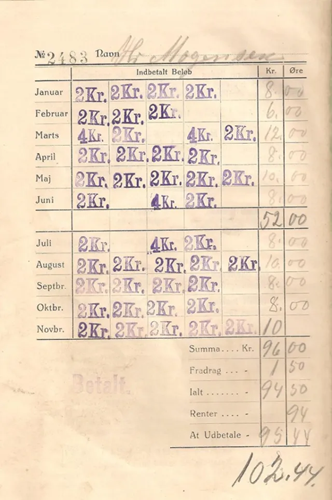 № 2483 Navn Hr Mogensen
Indbetalt Beløb Kr. Øre
Januar 2Kr. 2Kr. 2Kr. 2Kr. 8 00
Februar 2Kr. 2Kr. 2Kr. 6 00
Marts 4Kr. 2Kr. 4Kr. 2Kr. 12 00
April 2Kr. 2Kr. 2Kr. 2Kr. 8 00
Maj 2Kr. 2Kr. 2Kr. 2Kr. 2Kr. 10 00
Juni 2Kr. 4Kr. 2Kr. 8 00
52 00
Juli 2Kr. 4Kr. 2Kr. 8 00
August 2Kr. 2Kr. 2Kr. 2Kr. 2Kr. 10 00
Septbr. 2Kr. 2Kr. 2Kr. 2Kr. 8 00
Oktbr. 2Kr. 2Kr. 2Kr. 2Kr. 8 00
Novbr. 2Kr. 2Kr. 2Kr. 2Kr. 2Kr. 10
Summa.... Kr. 96 00
Fradrag.... - 1 50
Betalt.
Ialt...... - 94 50
Renter.... - 94
At Udbetale - 95 44
102.44.